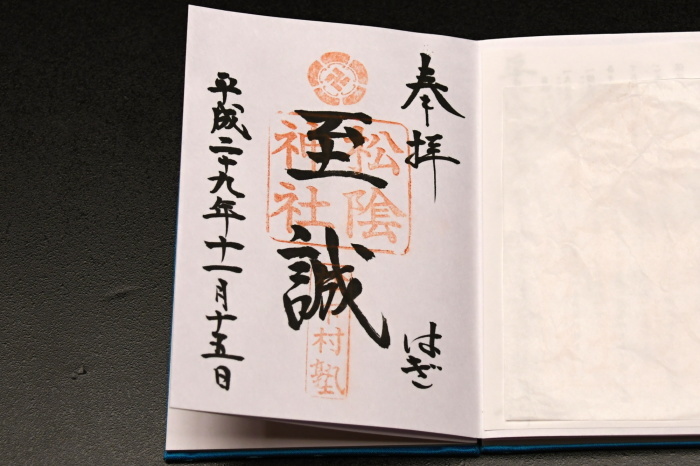 奉拝
はぎ
松陰
神社
至誠
村塾
平成二十九年十一月十五日